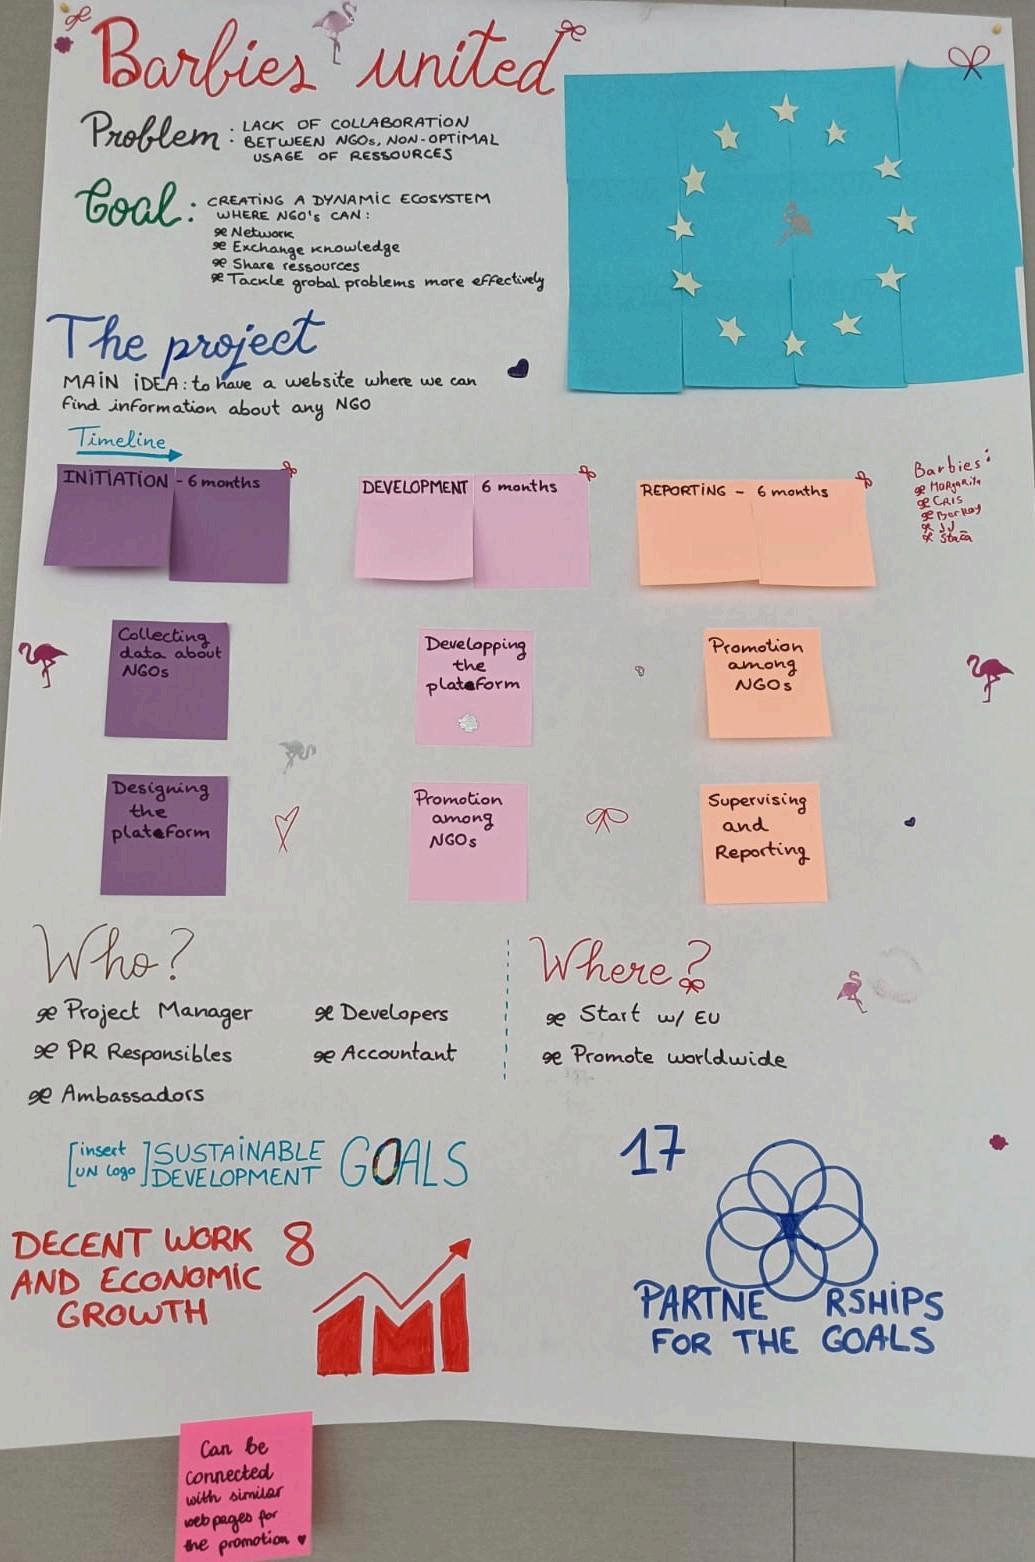 Barbies united
Problem : LACK OF COLLABORATION
BETWEEN NGOs, NON-OPTIMAL
USAGE OF RESSOURCES
Goal : CREATING A DYNAMIC ECOSYSTEM
WHERE NGO's CAN :
Network
Exchange knowledge
Share ressources
Tackle grobal problems more effectively
The project
MAIN IDEA : to have a website where we can
find information about any NGO
Timeline
INITIATION - 6 months
DEVELOPMENT 6 months
REPORTING - 6 months
Barbies :
Margarita
CRIS
Berkay
JJ
Collecting
data about
NGOs
Developping
the
plateform
Promotion
among
NGOs
Designing
the
plateform
Promotion
among
NGOs
Supervising
and
Reporting
Who?
Project Manager
PR Responsibles
Ambassadors
Developers
Accountant
Where?
Start w/ EU
Promote worldwide
[insert UN logo] SUSTAINABLE DEVELOPMENT GOALS
DECENT WORK 8
AND ECONOMIC
GROWTH
17
PARTNERSHIPS
FOR THE GOALS
Can be
connected
with similar
webpages for
the promotion ♥